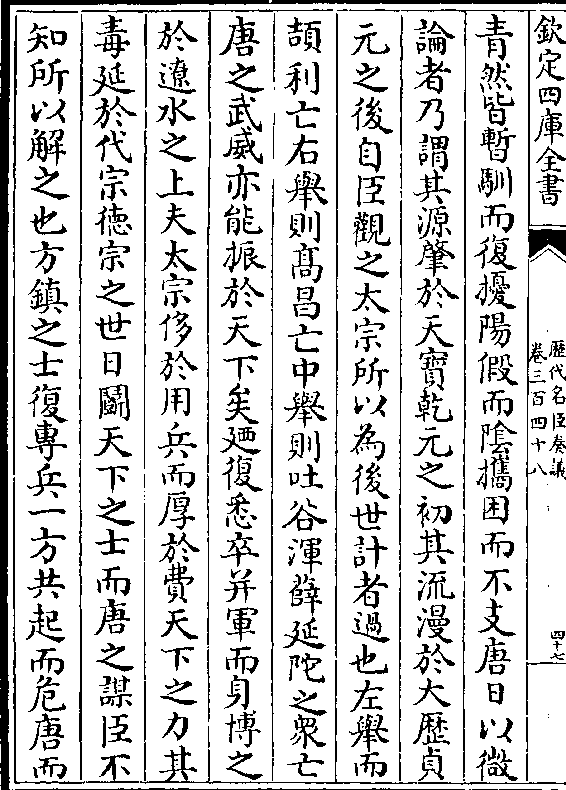 欽定四庫全書
歷代名臣奏議
卷三百四十八
四十七
青然皆暫馴而復擾陽假而陰攜困而不支唐日以微
論者乃謂其源肇於天寶乾元之初其流漫於大歷貞
元之後自臣觀之太宗所以為後世計者過也左舉而
頡利亡右舉則髙昌亡中舉則吐谷渾薛延陀之衆亡
唐之武威亦能振於天下矣廼復悉卒并軍而身博之
於遼水之上夫太宗侈於用兵而厚於費天下之力其
毒延於代宗德宗之世日鬭天下之士而唐之謀臣不
知所以解之也方鎮之士復專兵一方共起而危唐而